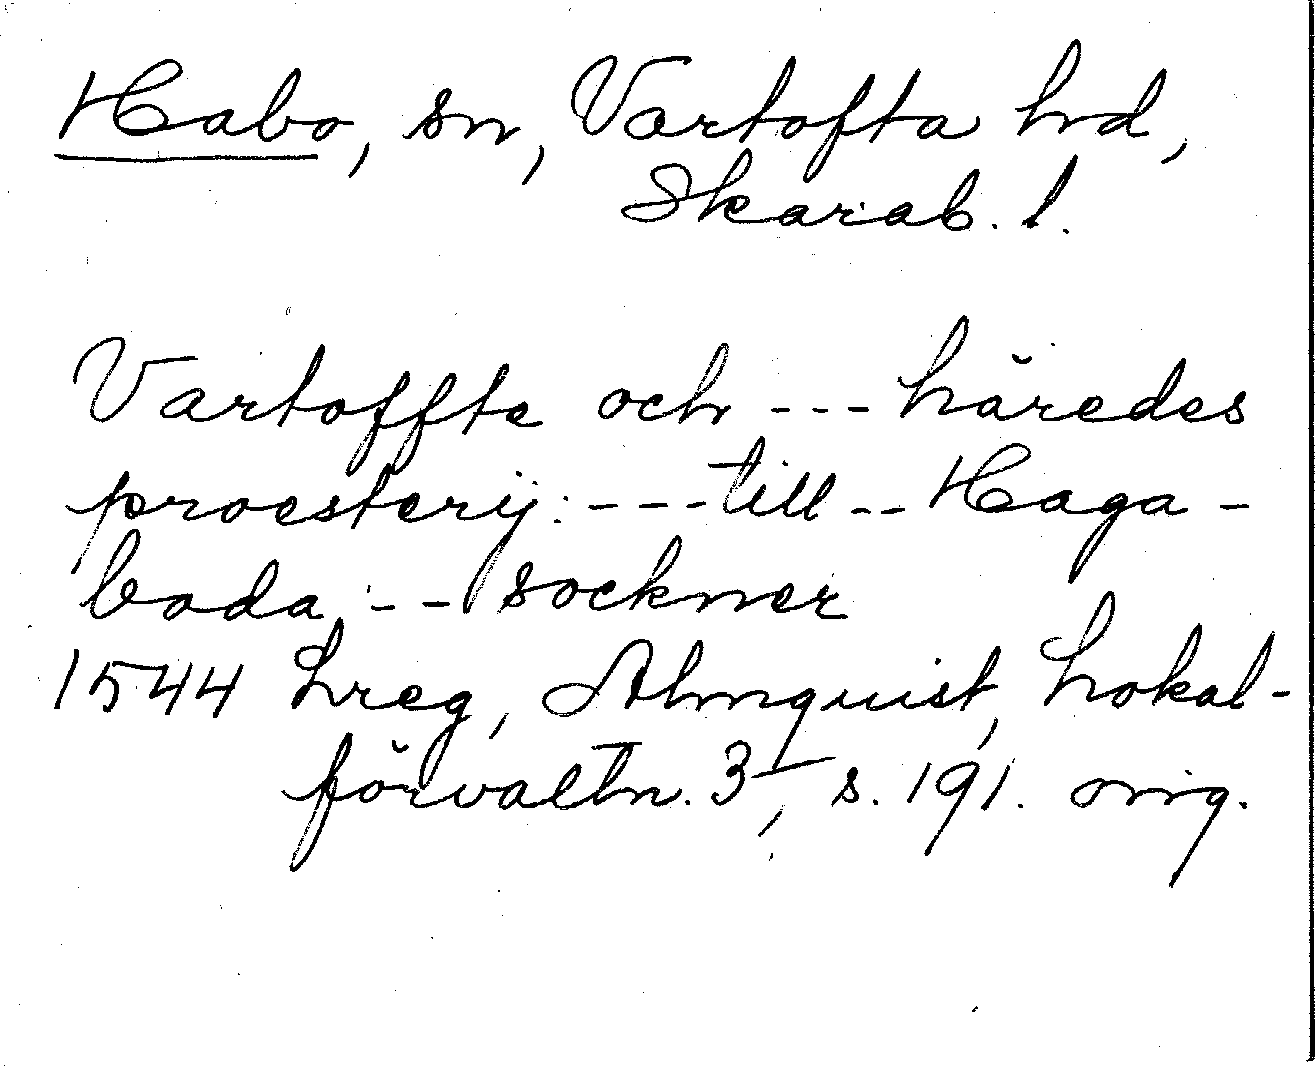 Habo, sn, Vartofta hd,
Skarab. l.
Vartoffte och --- häredes
proesterij: --- till -- Haga-
boda -- sockner
1544 Lreg, Almquist, Lokal-
förvaltn. 3, s. 191. orig.